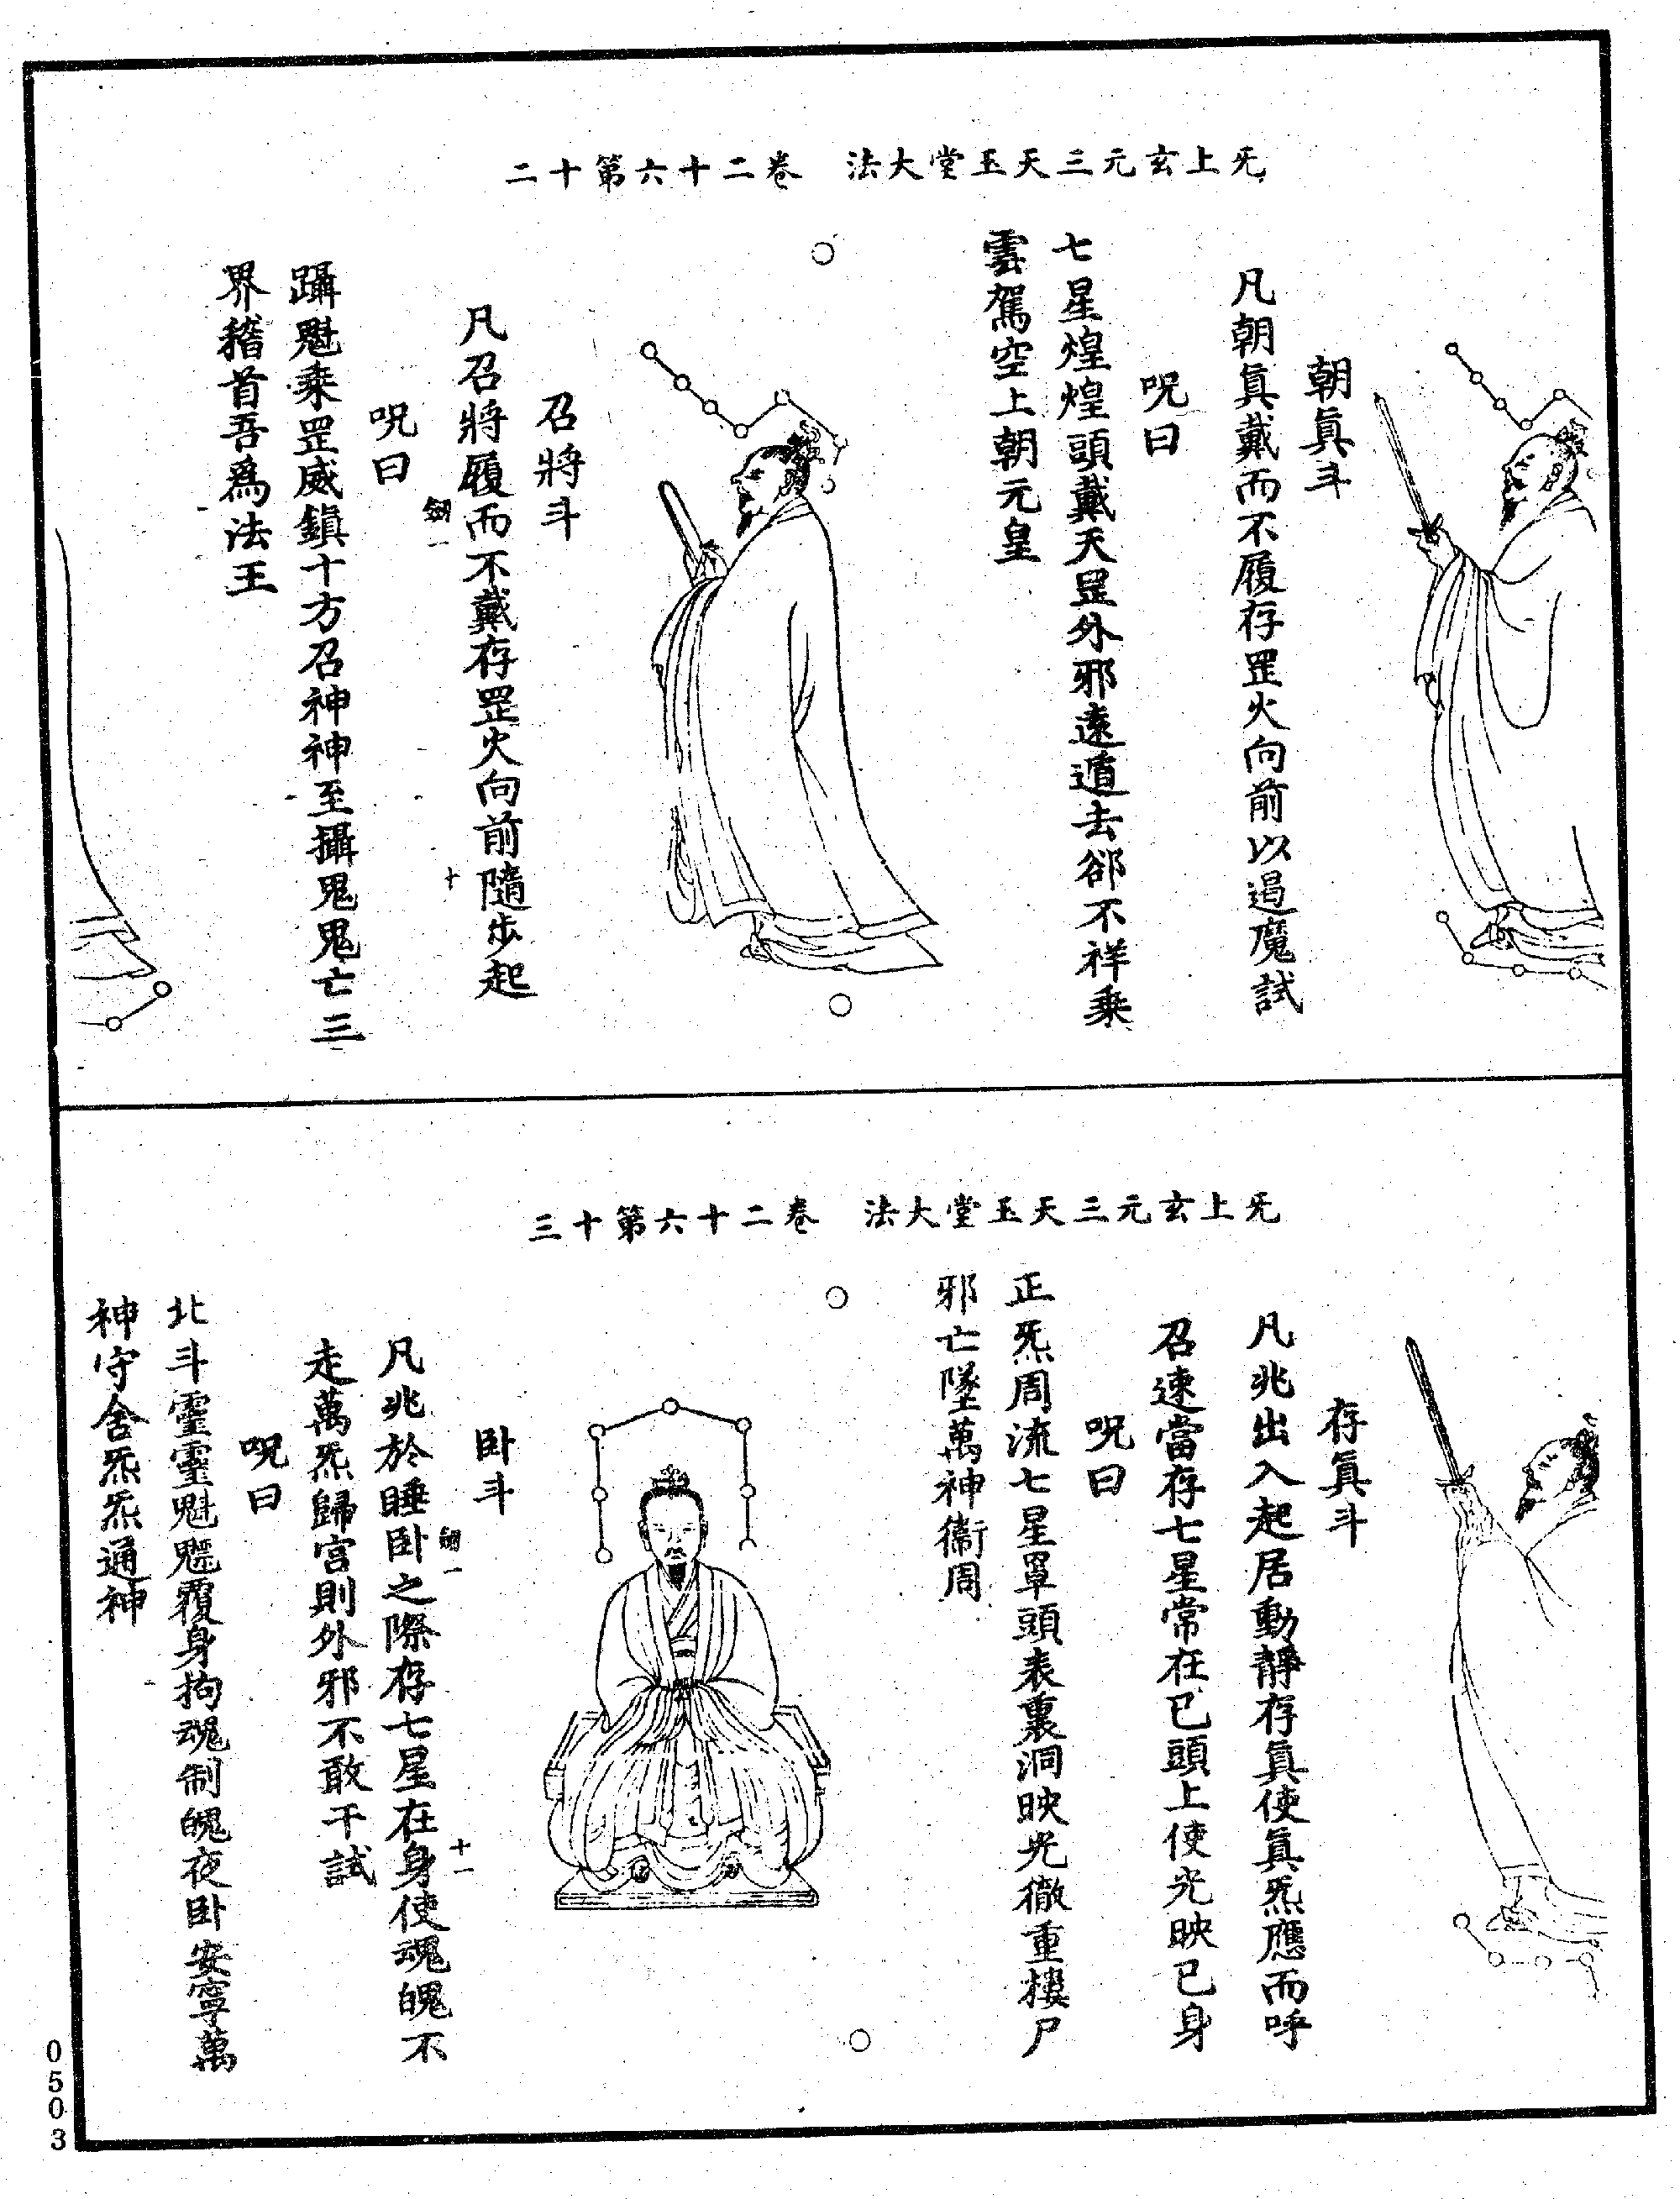 无上玄元三天玉堂大法　卷二十六第十二
朝眞斗
凡朝眞戴而不履存罡火向前以遏魔試
呪曰
七星煌煌頭戴天罡外邪遠遁去郤不祥乘
雲駕空上朝元皇
召將斗
凡召將履而不戴存罡火向前隨步起
劒一
十
呪曰
躡魁乘罡威鎮十方召神神至攝鬼鬼亡三
界稽首吾爲法王
无上玄元三天玉堂大法　卷二十六第十三
存眞斗
凡兆出入起居動靜存眞使眞炁應而呼
召速當存七星常在已頭上使光映已身
呪曰
正炁周流七星罩頭表裏洞映光徹重樓尸
邪亡墜萬神衞周
卧斗
劒一
十一
凡兆於睡卧之際存七星在身使魂魄不
走萬炁歸宫則外邪不敢干試
呪曰
北斗靈靈魁魒覆身拘魂制魄夜卧安寧萬
神守舍炁炁通神
0503